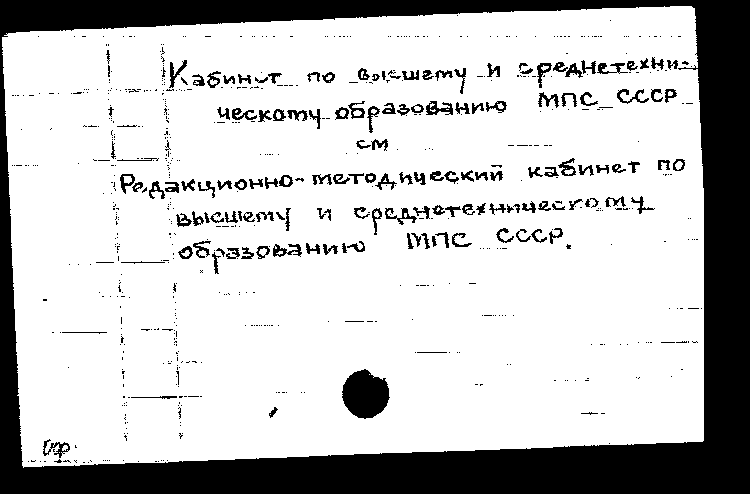 Кабинет по высшему и среднетехни-
ческому образованию МПС СССР
см
Редакционно-методический кабинет по
высшему и среднетехническому
образованию МПС СССР.